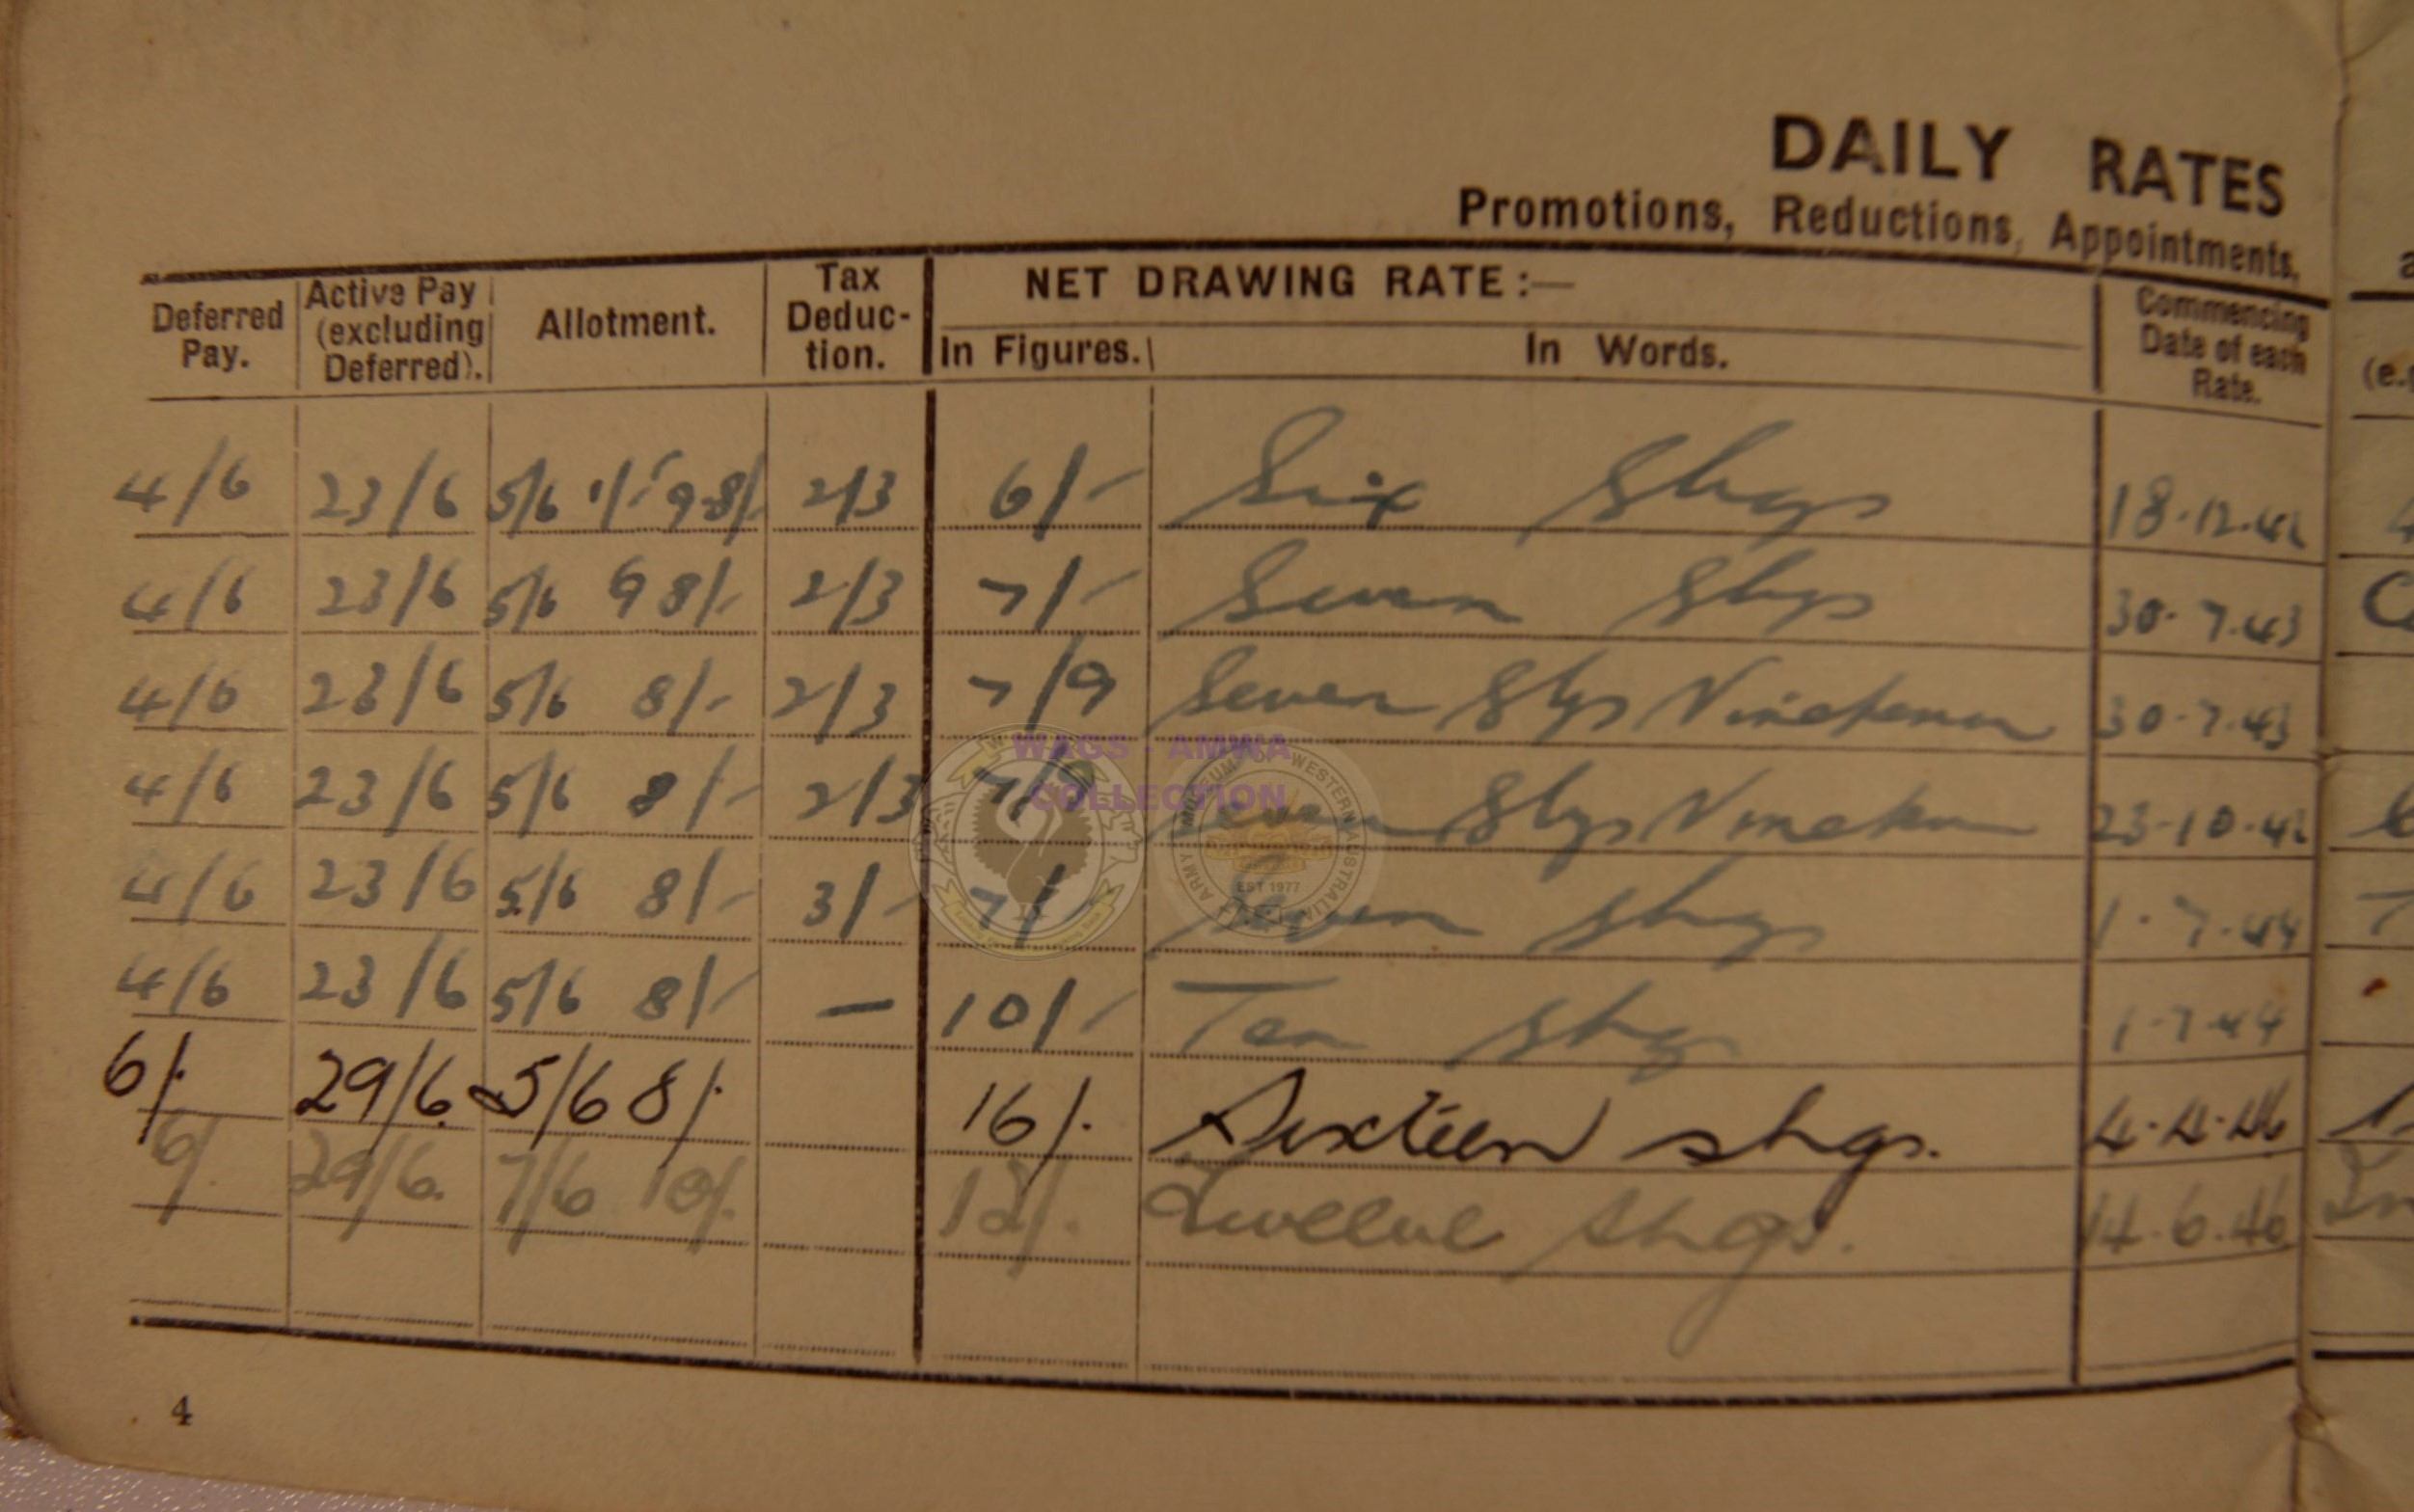 DAILY RATES
Promotions, Reductions, Appointments,
Deferred Pay. Active Pay (excluding Deferred). Allotment. Tax Deduc-tion. NET DRAWING RATE:— In Figures. In Words. Commencing Date of each Rate. (e.
4/6 23/6 5/6 8/- 2/3 6/- Six Shgs 18.12.42
4/6 23/6 5/6 9 8/- 2/3 7/- Seven Shgs 30.7.43
4/6 23/6 5/6 8/- 2/3 7/9 Seven Shgs Ninepence 30.7.43
4/6 23/6 5/6 8/- 2/3 7/9 Seven Shgs Ninepence 23-10-42
4/6 23/6 5/6 8/- 3/- 7/- Seven Shgs 1.7.44
4/6 23/6 5/6 8/- — 10/- Ten Shgs 1.7.44
6/. 29/6. 5/6 8/. 16/. Sixteen shgs. 4.4.46
6/. 29/6. 7/6 10/. 12/. Twelve Shgs. 14.6.46
4
WAGS - AMWA
COLLECTION
ARMY MUSEUM OF WESTERN AUSTRALIA
EST 1977